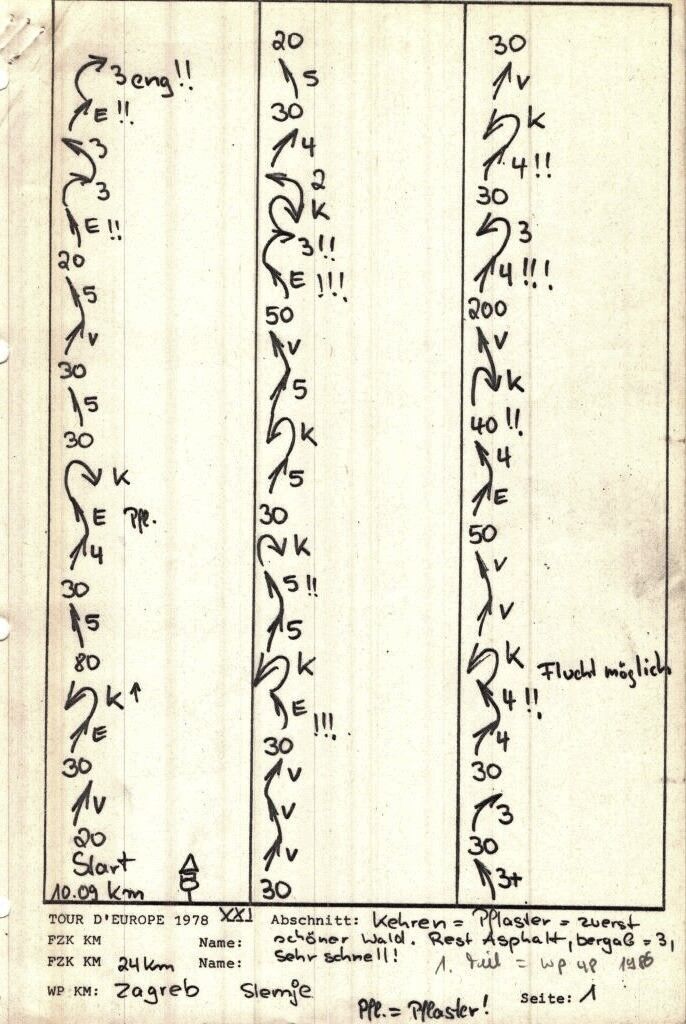 3 eng!!
E !!
3
3
E !!
20
5
v
30
5
30
K
E Pfl.
4
30
5
80
K ↑
E
30
v
20
Start
10.09 km
20
5
30
4
2
K
3!!
E !!!
50
v
5
K
5
30
K
5!!
5
K
E !!!
30
v
v
v
30
30
v
K
4!!
30
3
4!!!
200
v
K
40!!
4
E
50
v
v
K Flucht möglich
4!!
4
30
3
30
3+
TOUR D'EUROPE 1978 XXI Abschnitt: Kehren = Pflaster = zuerst
FZK KM Name: schöner Wald. Rest Asphalt, bergab = 3,
FZK KM 24km Name: sehr schnell!
1. Teil = WP 4P 1986
WP KM: Zagreb Slemje
Seite: 1
Pfl. = Pflaster!